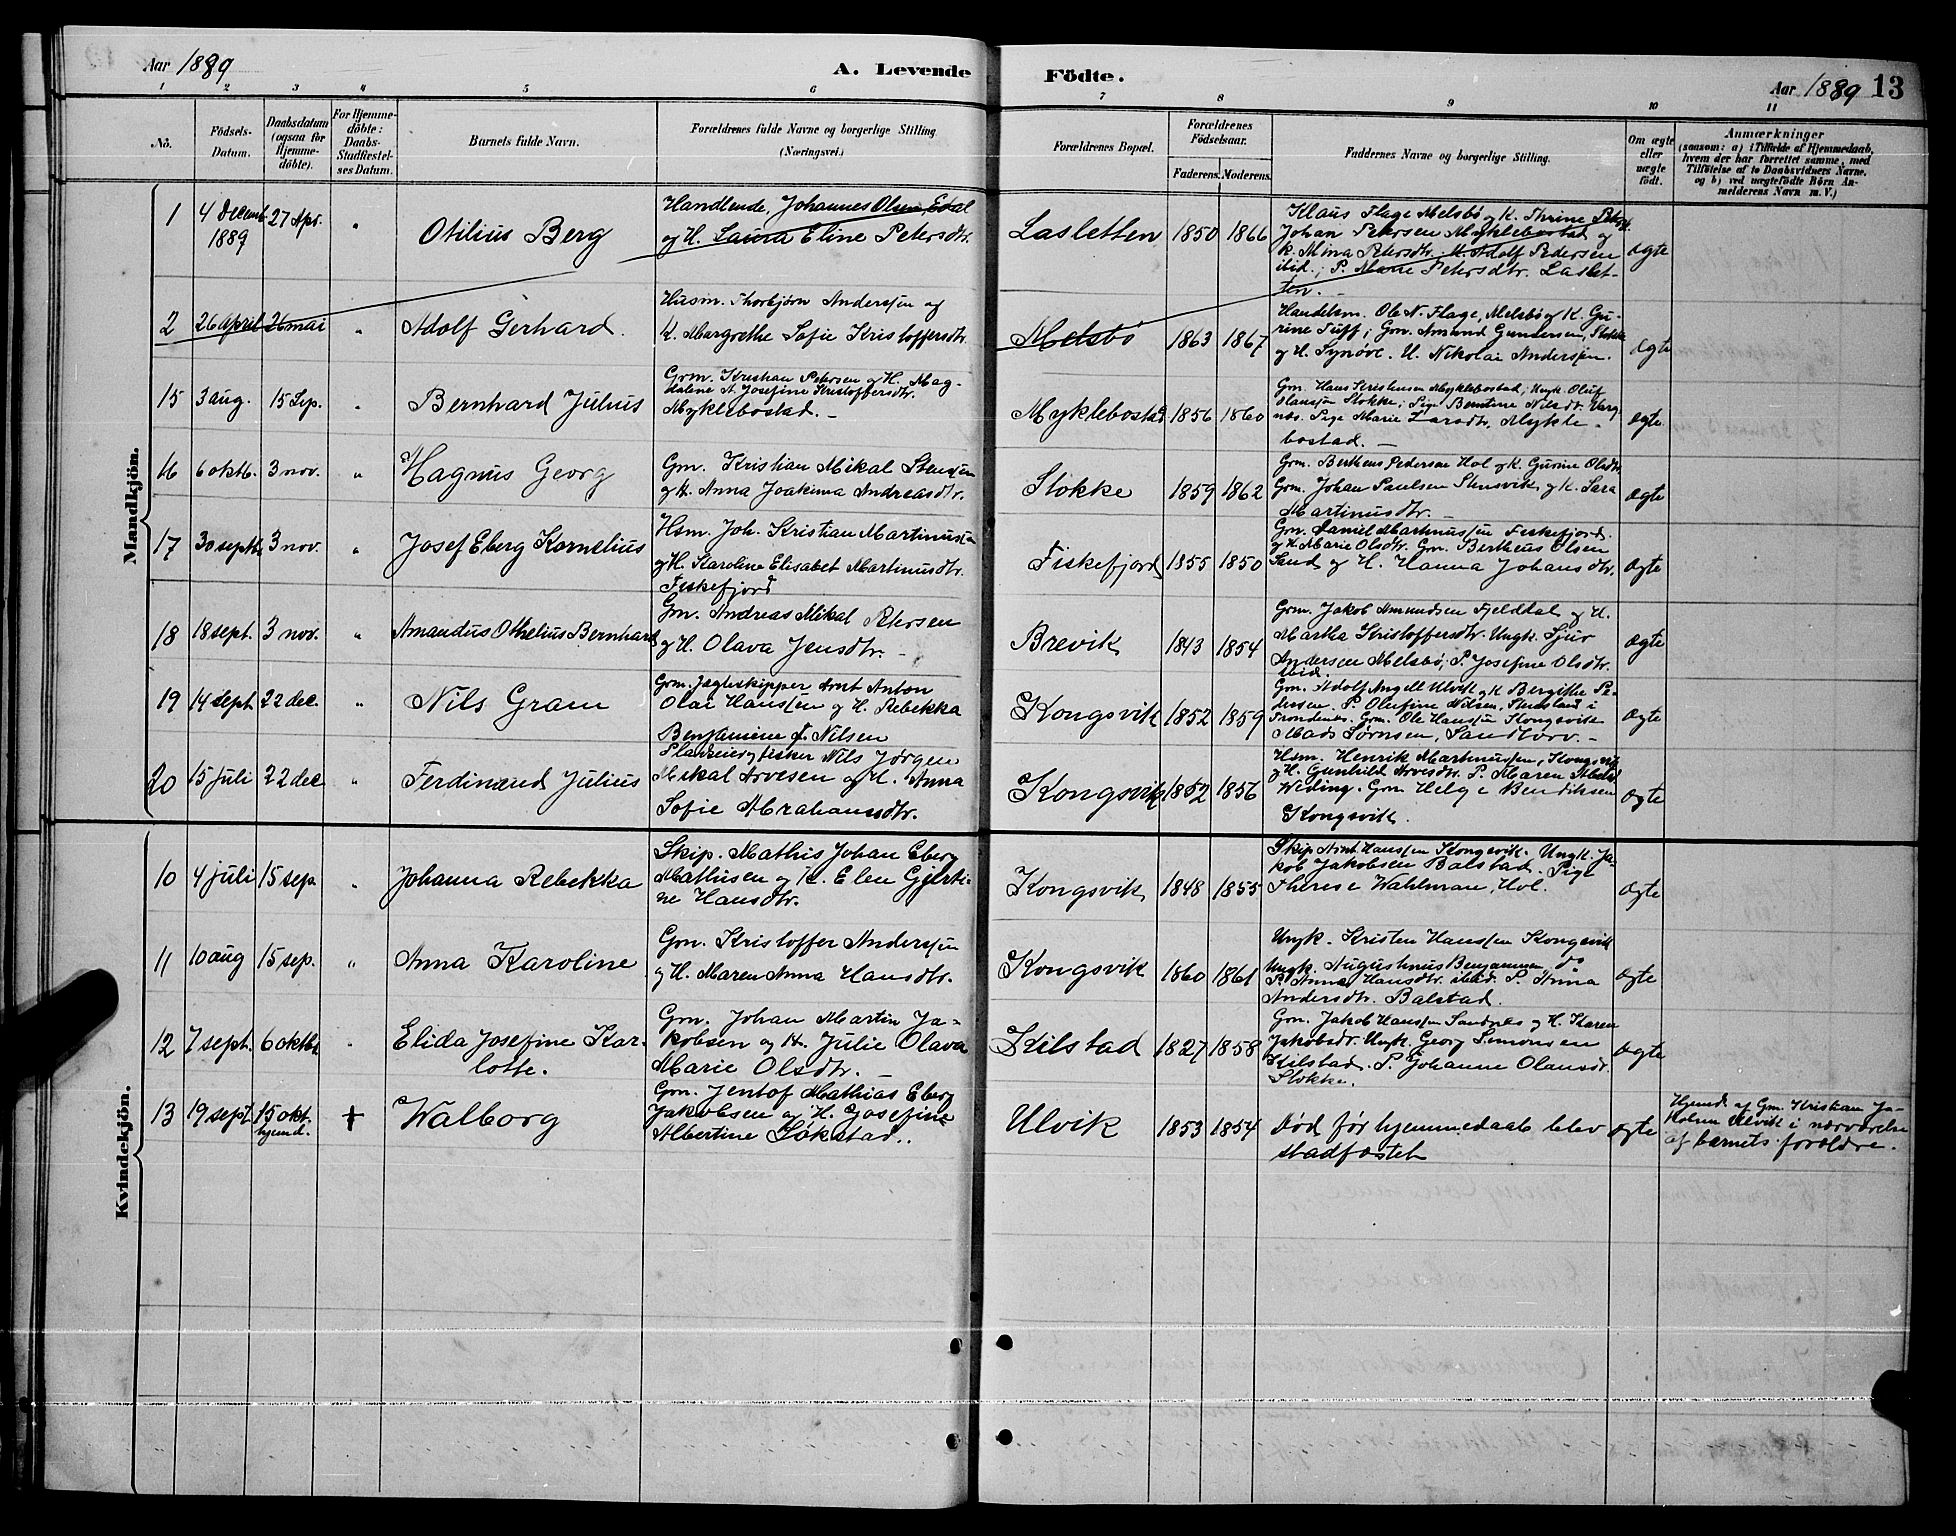 Aar 1889
A. Levende Födte.
Aar 1889 13
1 2 3 4 5 6 7 8 9 10 11
No.
Födsels-
Datum.
Daabsdatum
(ogsaa for
Hjemme-
döbte).
For Hjemme-
döbte:
Daabs-
Stadfæstel-
ses Datum.
Barnets fulde Navn.
Forældrenes fulde Navne og borgerlige Stilling
(Næringsvei.)
Forældrenes Bopæl.
Forældrenes
Födselsaar.
Faderens. Moderens.
Faddernes Navne og borgerlige Stilling.
Om ægte
eller
uægte
födt.
Anmærkninger
(saasom: a) i Tilfælde af Hjemmedaab,
hvem der har forrettet samme, med
Tilföielse af to Daabsvidners Navne,
og b) ved uægtefödte Börn An-
melderens Navn m. V.)
Mandkjön.
1
4 Decemb.
1889
27 Apr.
"
Otilius Berg
Handlende, Johannes Olsen
og H. Laura Eline Petersdtr.
Lasletten
1850 1866
Klaus Flage Melsbö og K. Thrine
Johan Petersen Myklebostad og
K. Mina Petersdtr. Adolf Pedersen
ibid.; P. Marie Petersdtr. Laslet-
ten.
ægte
2
26 April
26 mai
"
Adolf Gerhard.
Husm. Thorbjørn Anderssen og
K. Margrethe Sofie Kristoffersdtr.
Melsbö
1863 1867
Handelsm. Ole N. Flage, Melsbö og K. Gu-
rine Tuff; Grm. Amund Gundersen, Stokke
og H. Synöve. U. Nikolai Anderssen.
ægte
15
3 aug.
15 Sep.
"
Bernhard Julius
Grm. Kristian Petersen og H. Mag-
dalene A. Josefine Kristoffersdtr.
Myklebostad. -
Myklebostad
1856 1860
Gm. Hans Kristensen Myklebostad; Ungk. Oluf
Olanssen Stokke; Pige Berntine Nilsdtr. Varg-
næs. Pige Marie Larsdtr. Mykle-
bostad. -
ægte
16
6 oktb.
3 nov.
"
Hagnus Georg
Gm. Kristian Mikal Stenssen
og H. Anna Joakima Andreasdtr.
Stokke
1859 1862
Grm. Bertheus Pedersen Hol og K. Gurine Olsdtr.
Grm. Johan Paulsen Stensvik og K. Sara
Martinusdtr.
ægte
17
30 septb.
3 nov.
"
Josef Eberg Kornelius
Hsm. Joh. Kristian Martinussen
og H. Karoline Elisabet Martinusdtr.
Fiskefjord
Fiskefjord
1855 1850
Gm. Daniel Martinussen Fiskefjord.
og H. Marie Olsdtr. Gm. Bertheus Olsen
Sand og H. Hanna Johansdtr.
ægte
18
18 sept.
3 nov.
"
Amandus Othelius Bernhard
Gm. Andreas Mikal Petersen
og H. Olava Jensdtr. -
Brevik
1843 1854
Grm. Jakob Amundsen Fjelddal og H.
Martha Kristoffersdtr. Ungk. Sjur
Andersen Melsbö; P. Josefine Olsdtr.
ibid.
ægte
19
14 sept.
22 dec.
"
Nils Gram
Grm. Jagteskipper Arnt Anton
Olai Hanssen og H. Rebekka
Benjamine f. Nilsen
Kongsvik
1852 1859
Gm. Adolf Angell Ulvik og K. Bergithe Pe-
dersen. P. Olufine Nilsen, i
Trondenes. Grm. Ole Hanssen Kongsvik
Mads Sørnsen, Sandtorv. -
ægte
20
15 juli
22 dec
"
Ferdinand Julius
Pladseier og fisker Nils Jørgen
Mikal Arvesen og H. Anna
Sofie Abrahamsdtr.
Kongsvik
1852 1856
Hsm. Henrik Martinussen, Kongsvik
og H. Gunhild Arvesdtr. P. Maren
Weding. Grm Helge Bendiksen
Kongsvik.
ægte
Kvindekjön.
10
4 juli
15 sep.
"
Johanna Rebekka
Skip. Mathis Johan Eberg
Mathisen og K. Elen Gjerti-
ne Hansdtr.
Kongsvik
1848 1855
Skip Arnt Hanssen Kongsvik. Ungk. Ja-
kob Jakobsen Balstad. Pige
Therese Wahlman, Hol.
ægte
11
10 aug
15 sep.
"
Anna Karoline
Gm. Kristoffer Anderssen
og H. Maren Anna Hansdtr.
Kongsvik
1860 1861
Ungk. Kristen Hanssen Kongsvik
Ungk. Augustinus Benjaminsen do
P. Anne Hansdtr. ibid. P. Anna
Andersdtr. Balstad.
ægte
12
7 sept.
6 oktb.
"
Elida Josefine Kar-
lotte.
Gm. Johan Martin Ja-
kobsen og H. Julie Olava
Marie Olsdtr. -
Kilstad
1827 1858
Gm. Jakob Hanssen Sandnes og H. Karen
Jakobsdr. Ungk. Georg Simonsen
Kilstad. P. Johanne Olansdr.
Stokke.
ægte
13
19 sept.
15 okt.
hjemd.
+
Walborg
Gm. Jentof Mathias Eberg
Jakobsen og H. Josefine
Albertine Sökstad.
Ulvik
1853 1854
Död för hjemmedaab blev
stadfæstet
ægte
Hjemd. af Gm. Kristian Ja-
kobsen Ulvik i nærværelse
af barnets forældre.